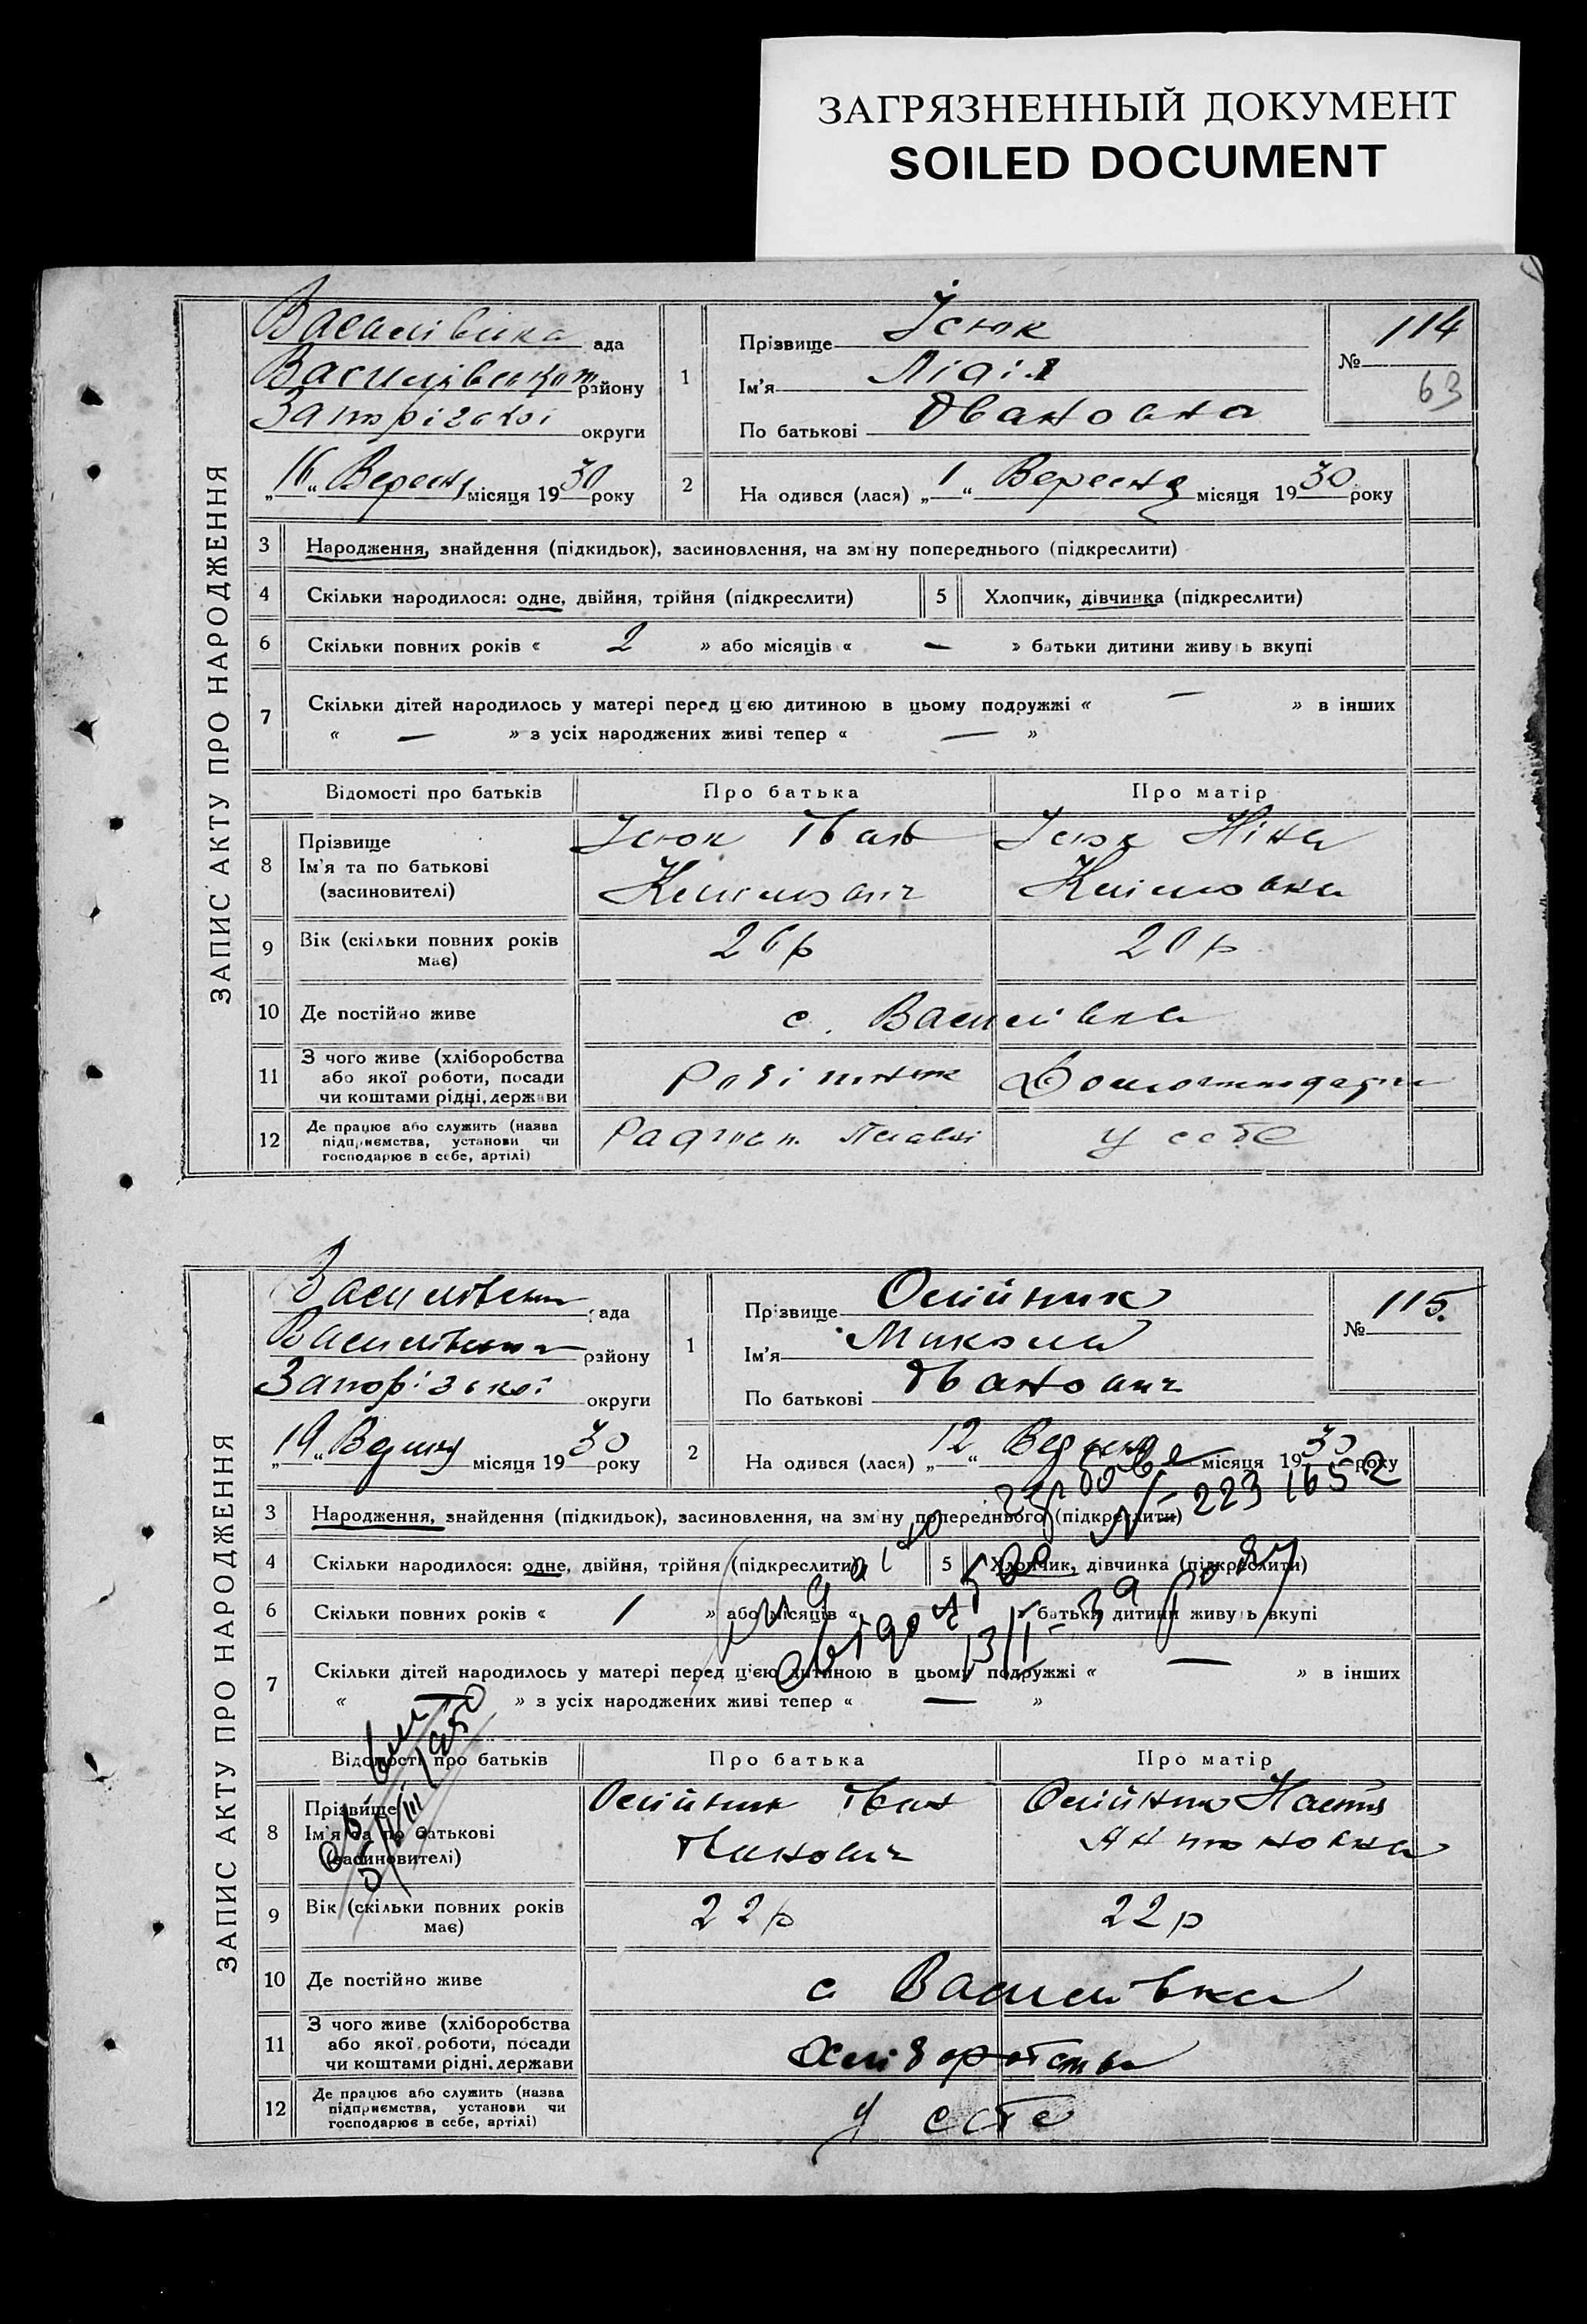 ЗАГРЯЗНЕННЫЙ ДОКУМЕНТ
SOILED DOCUMENT
ЗАПИС АКТУ ПРО НАРОДЖЕННЯ
ада
району
Запорізької округи
„16“ Вересня місяця 1930 року
1 Прізвище Ісюк
Ім'я Лідія
По батькові Івановна
№ 114
63
2 На одився (лася) „1“ Вересня місяця 1930 року
3 Народження, знайдення (підкидьок), засиновлення, на зм ну попереднього (підкреслити)
4 Скільки народилося: одне, двійня, трійня (підкреслити) 5 Хлопчик, дівчинка (підкреслити)
6 Скільки повних років « 2 » або місяців « — » батьки дитини живу ь вкупі
7 Скільки дітей народилось у матері перед ц'єю дитиною в цьому подружжі « — » в інших
« — » з усіх народжених живі тепер « — »
Відомості про батьків Про батька Про матір
8 Прізвище
Ім'я та по батькові
(засиновителі)
Ісюк Іван
Ісюк Ніна
9 Вік (скільки повних років
має)
26 р
20 р.
10 Де постійно живе с. Василівка
11 З чого живе (хліборобства
або якої роботи, посади
чи коштами рідні, держави
Робітник
Домогосподарка
12 Де працює або служить (назва
підприємства, установи чи
господарює в себе, артілі)
у себе
ЗАПИС АКТУ ПРО НАРОДЖЕННЯ
ада
району
Запорізької округи
„19“ Вересня місяця 1930 року
1 Прізвище Олійник
Ім'я Микола
По батькові Іванович
№ 115.
2 На одився (лася) „12“ Вересня місяця 1930 року
3 Народження, знайдення (підкидьок), засиновлення, на зм ну попереднього (підкреслити)
№ 223 1652
4 Скільки народилося: одне, двійня, трійня (підкреслити) 5 Хлопчик, дівчинка (підкреслити)
6 Скільки повних років « 1 » або місяців « » батьки дитини живу ь вкупі
7 Скільки дітей народилось у матері перед ц'єю дитиною в цьому подружжі « — » в інших
« — » з усіх народжених живі тепер « — »
Відомості про батьків Про батька Про матір
8 Прізвище
Ім'я та по батькові
(засиновителі)
Олійник Іван
Іванович
Олійник Настя
Антоновна
9 Вік (скільки повних років
має)
22 р
22 р
10 Де постійно живе с Василівка
11 З чого живе (хліборобства
або якої роботи, посади
чи коштами рідні, держави
Хліборобства
12 Де працює або служить (назва
підприємства, установи чи
господарює в себе, артілі)
у себе